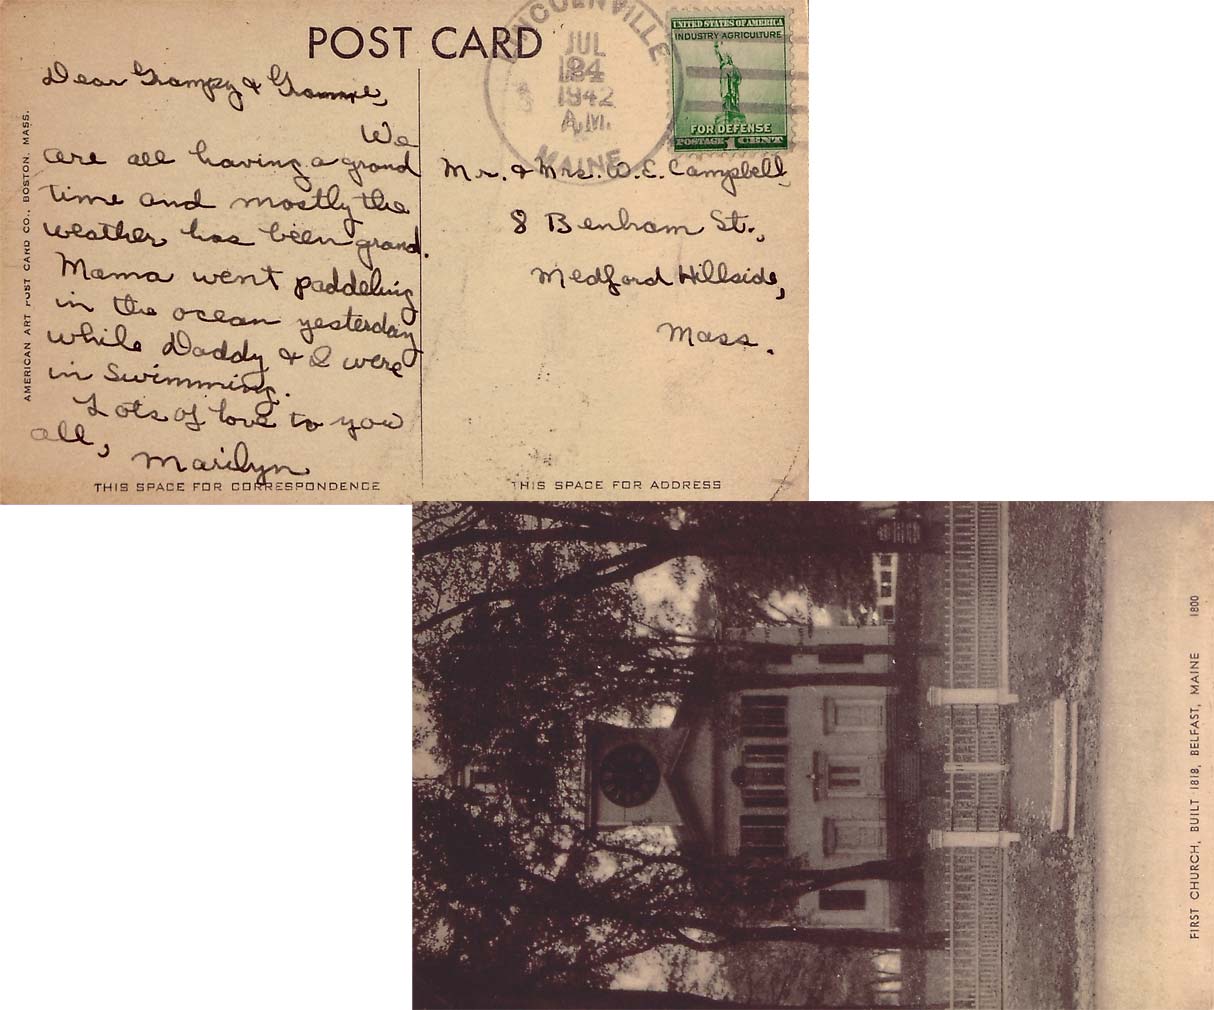 POST CARD
LINCOLNVILLE
JUL
1942
A.M.
MAINE
UNITED STATES OF AMERICA
INDUSTRY AGRICULTURE
FOR DEFENSE
POSTAGE 1 CENT
AMERICAN ART POST CARD CO., BOSTON, MASS.
Dear Grampy & Gramme,
We
are all having a grand
time and mostly the
weather has been grand.
Mama went paddeling
in the ocean yesterday
while Daddy & I were
in swimming.
Lots of love to you
all,
Marilyn
THIS SPACE FOR CORRESPONDENCE
Mr. & Mrs. W. E. Campbell,
8 Benham St.,
Medford Hillside,
Mass.
THIS SPACE FOR ADDRESS
FIRST CHURCH, BUILT 1818, BELFAST, MAINE 1800